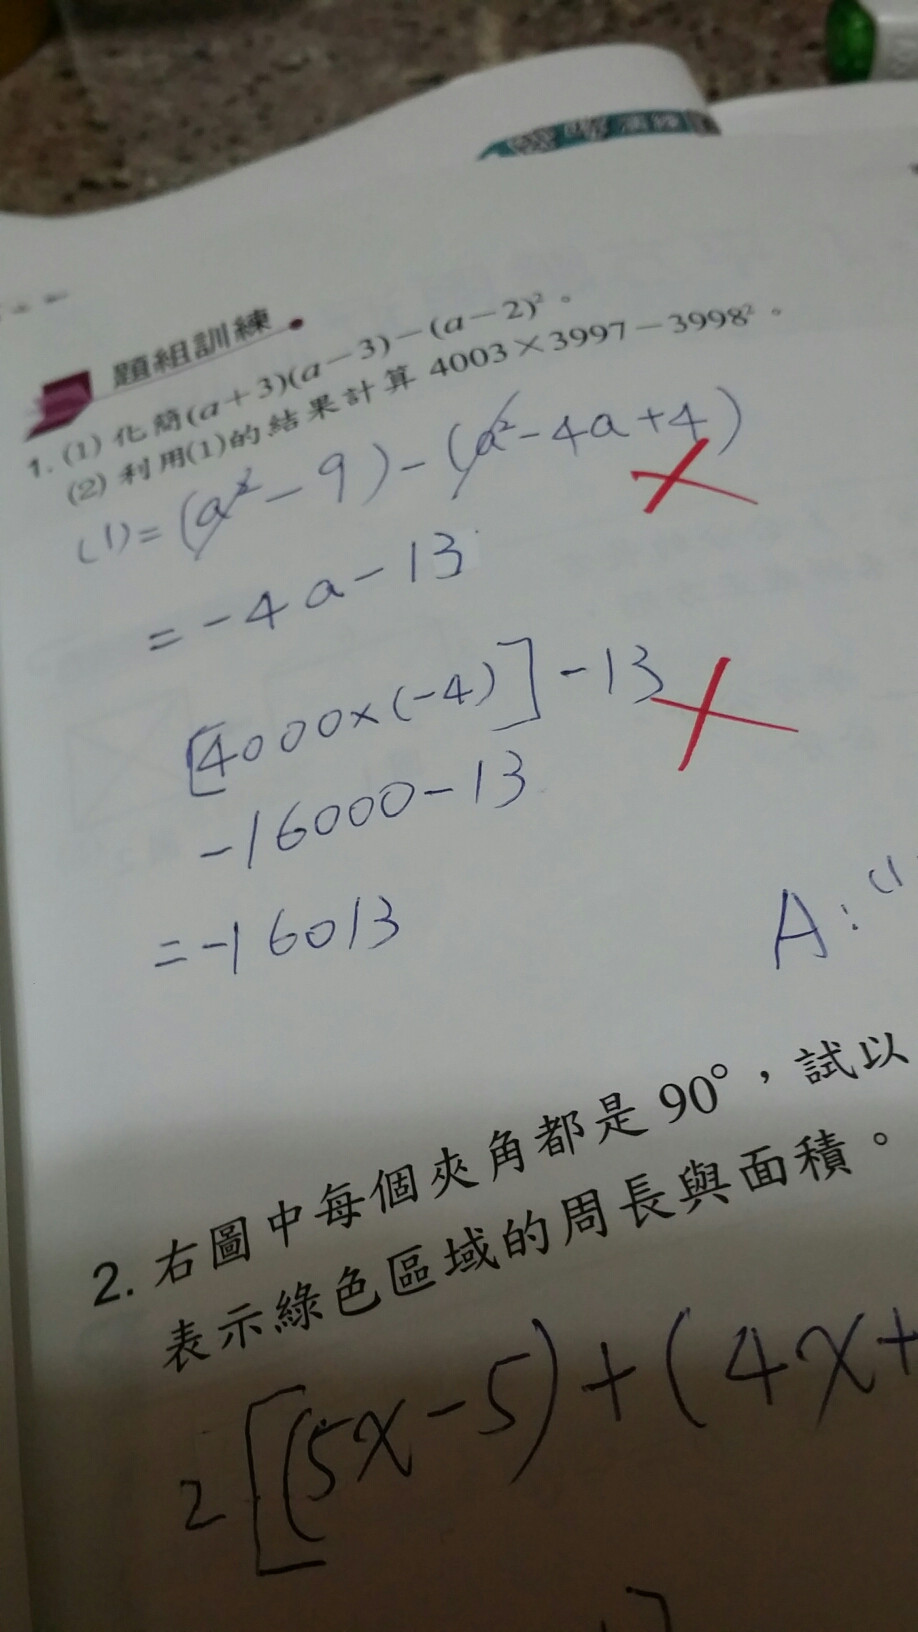 題組訓練
1. (1) 化簡(a+3)(a−3)−(a−2)²。
(2) 利用(1)的結果計算 4003×3997−3998²。
(1)=(a²−9)−(a²−4a+4)
=−4a−13
[4000×(−4)]−13
−16000−13
=−16013
A:(1
2. 右圖中每個夾角都是 90°,試以
表示綠色區域的周長與面積。
2[(5x−5)+(4x+